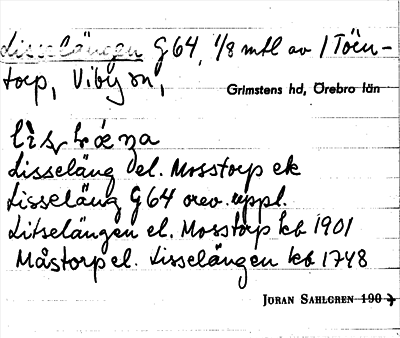 Lisselängen G64, 1/8 mtl av 1 Töön-
torp, Viby sn,
Grimstens hd, Örebro län
Lisseläng el. Mosstorp ek
Lisseläng G64 orev. uppl.
Litselängen el. Mosstorp kb 1901
Måstorp el. Lisselängen kb 1748
JÖRAN SAHLGREN 190